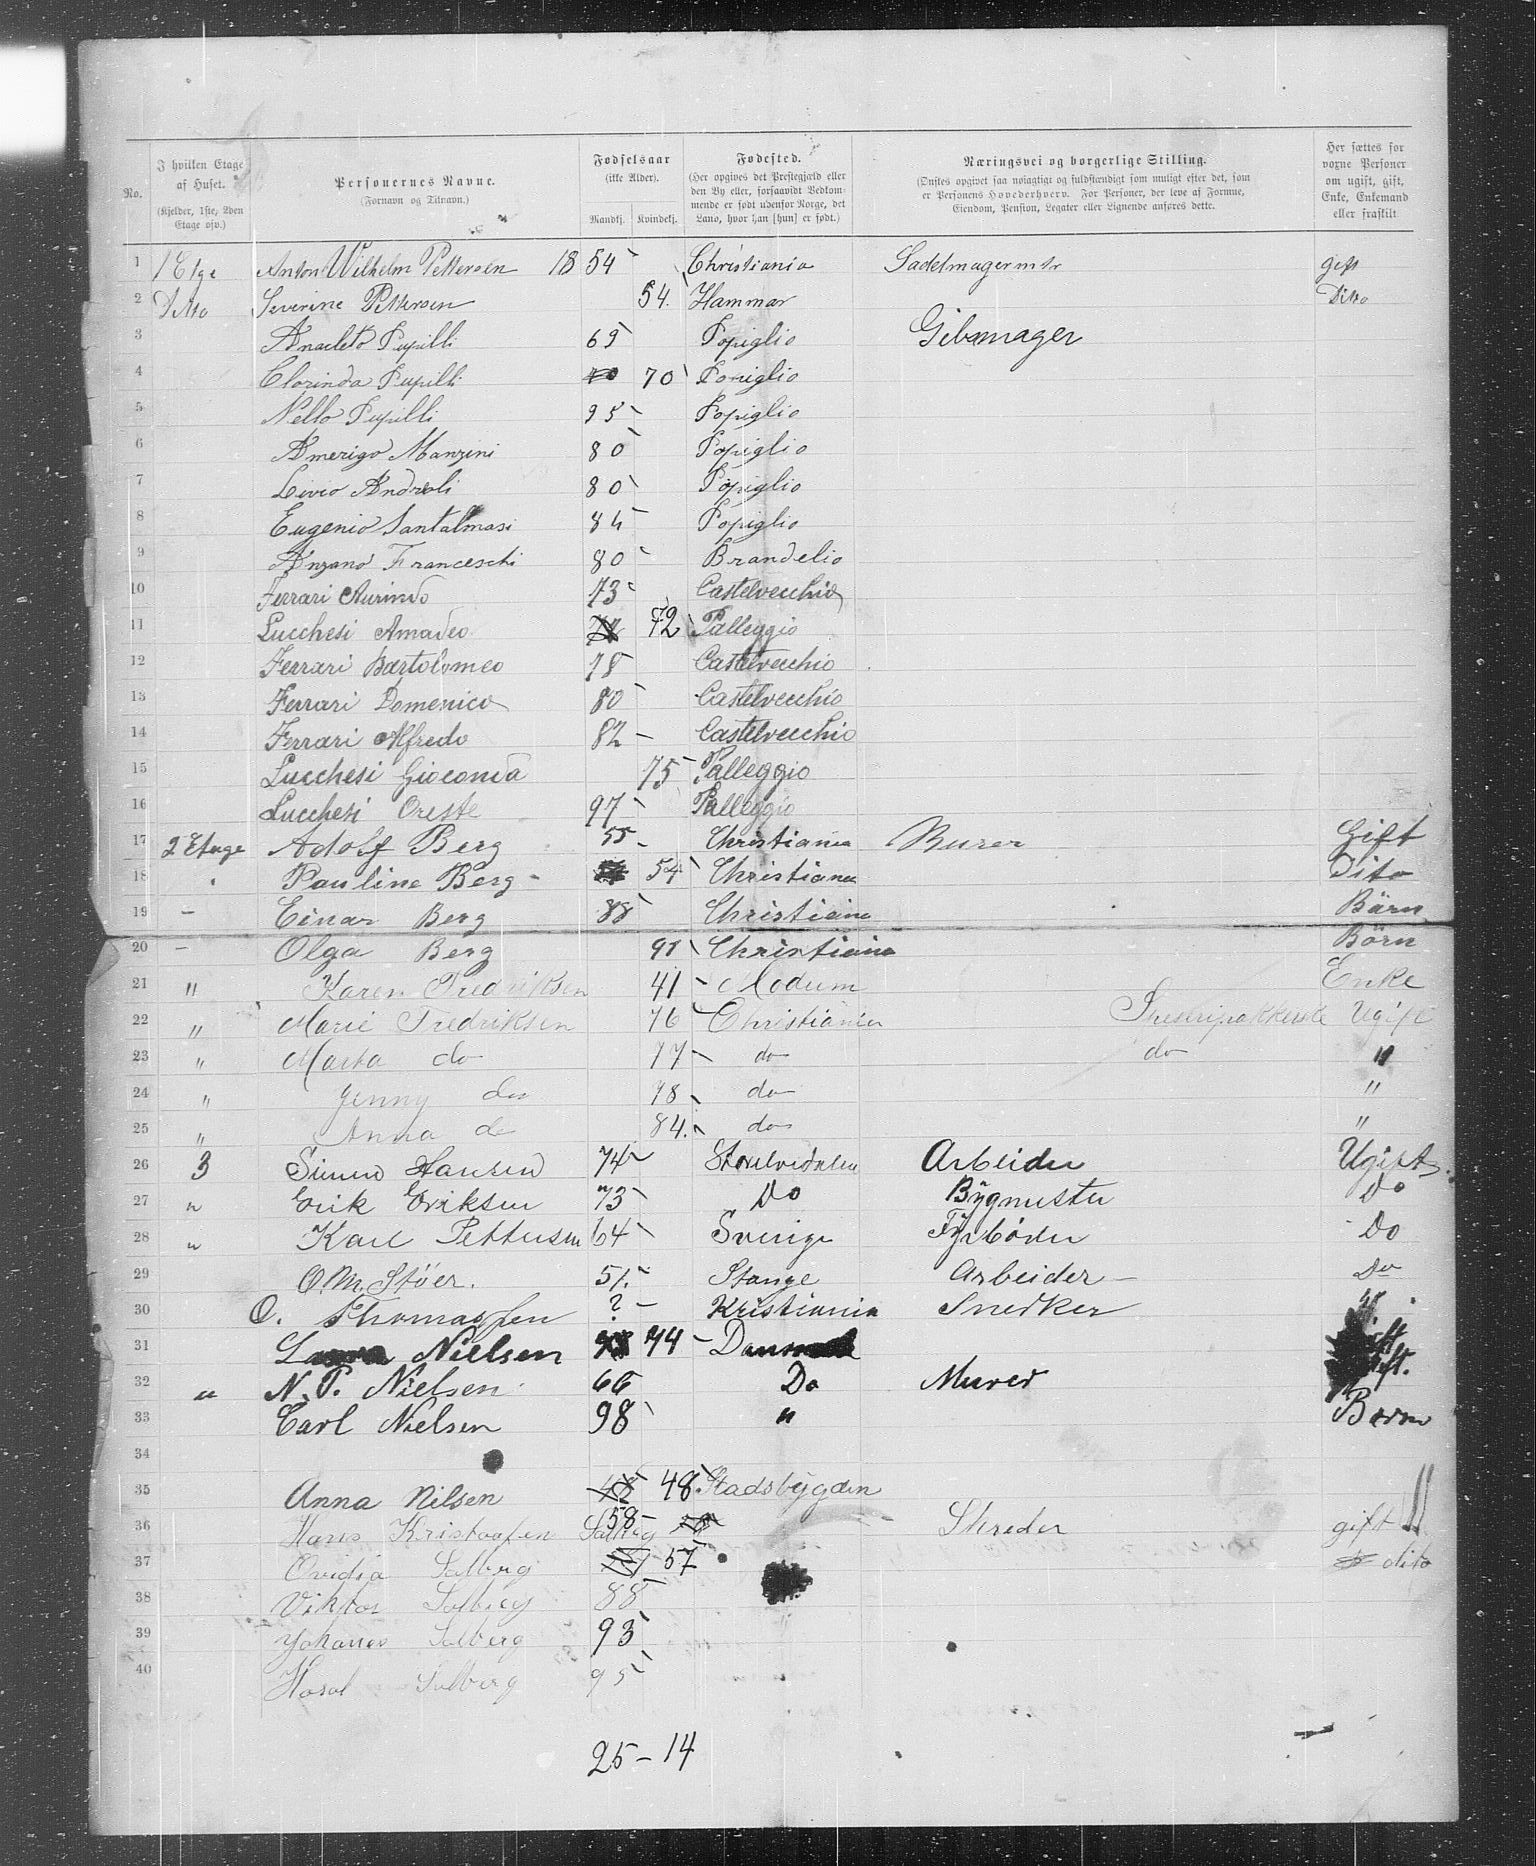 No.
I hvilken Etage af Huset.
(Kjelder, 1ste, 2den Etage osv.)
Personernes Navne.
(Fornavn og Tilnavn.)
Fødselsaar
(ikke Alder).
Mandkj. Kvindekj.
Fødested.
(Her opgives det Prestegjæld eller den By eller, forsaavidt Vedkommende er født udenfor Norge, det Land, hvor han [hun] er født.)
Næringsvei og borgerlige Stilling.
(Ønskes opgivet saa nøiagtigt og fuldstændigt som muligt efter det, som er Personens Hovederhverv. For Personer, der leve af Formue, Eiendom, Pension, Legater eller Lignende anføres dette.
Her sættes for voxne Personer om ugift, gift, Enke, Enkemand eller fraskilt
1 1 Etge Anton Wilhelm Pettersen 18 54 Christiania Sadelmagermstr gift
2 Ditto Severine Pettersen 54. Hammar Ditto
3 Anacleto Pupilli 69 Popiglio Gibsmager
4 Clorinda Pupilli 70 Popiglio
5 Nello Pupilli 95 Popiglio
6 Amerigo Manzini 80 Popiglio
7 Livio Andreoli 80 Popiglio
8 Eugenio Santalmasi 84 Popiglio
9 Anzano Franceschi 80 Brandelio
10 Ferrari Aurindo 73 Castelvecchio
11 Lucchesi Amadeo 72 Palleggio
12 Ferrari Bartolomeo 78 Castelvecchio
13 Ferrari Domenico 80 Castelvecchio
14 Ferrari Alfredo 82 Castelvecchio
15 Lucchesi Gioconda 75 Palleggio
16 Lucchesi Oreste 97 Palleggio
17 2 Etage Adolf Berg 55 Christiania Murer Gift
18 Pauline Berg 54 Christiania Dito
19 - Einar Berg 88 Christiania Bärn
20 - Olga Berg 91 Christiania Börn
21 " Karen Fredriksen 41 Modum Enke
22 " Marie Fredriksen 76 Christiania Ugift
23 " Marta do 77 do do "
24 " Jenny do 78 do "
25 " Anna do 84. do "
26 3 Simen Hansen 74 Arbeider Ugift
27 " Erik Eriksen 73 Do Bygmester Do
28 " Karl Pettersen 64 Sverige Fyrbøder Do
29 O.M. Støer. 51. Stange Arbeider Do
30 O. Thomassen ? Kristiania Snedker
31 Nielsen 74
32 " N. P. Nielsen 66 Do Murer
33 Carl Nielsen 98 " Barn
34
35 Anna Nilsen 48 Stadsbygden
36 Hans Kristoffen Solberg 58 Skreder gift
37 Ovidia Solberg 57 dito
38 Viktor Solberg 88
39 Johanes Solberg 93
40 Harol Solberg 95
25 - 14